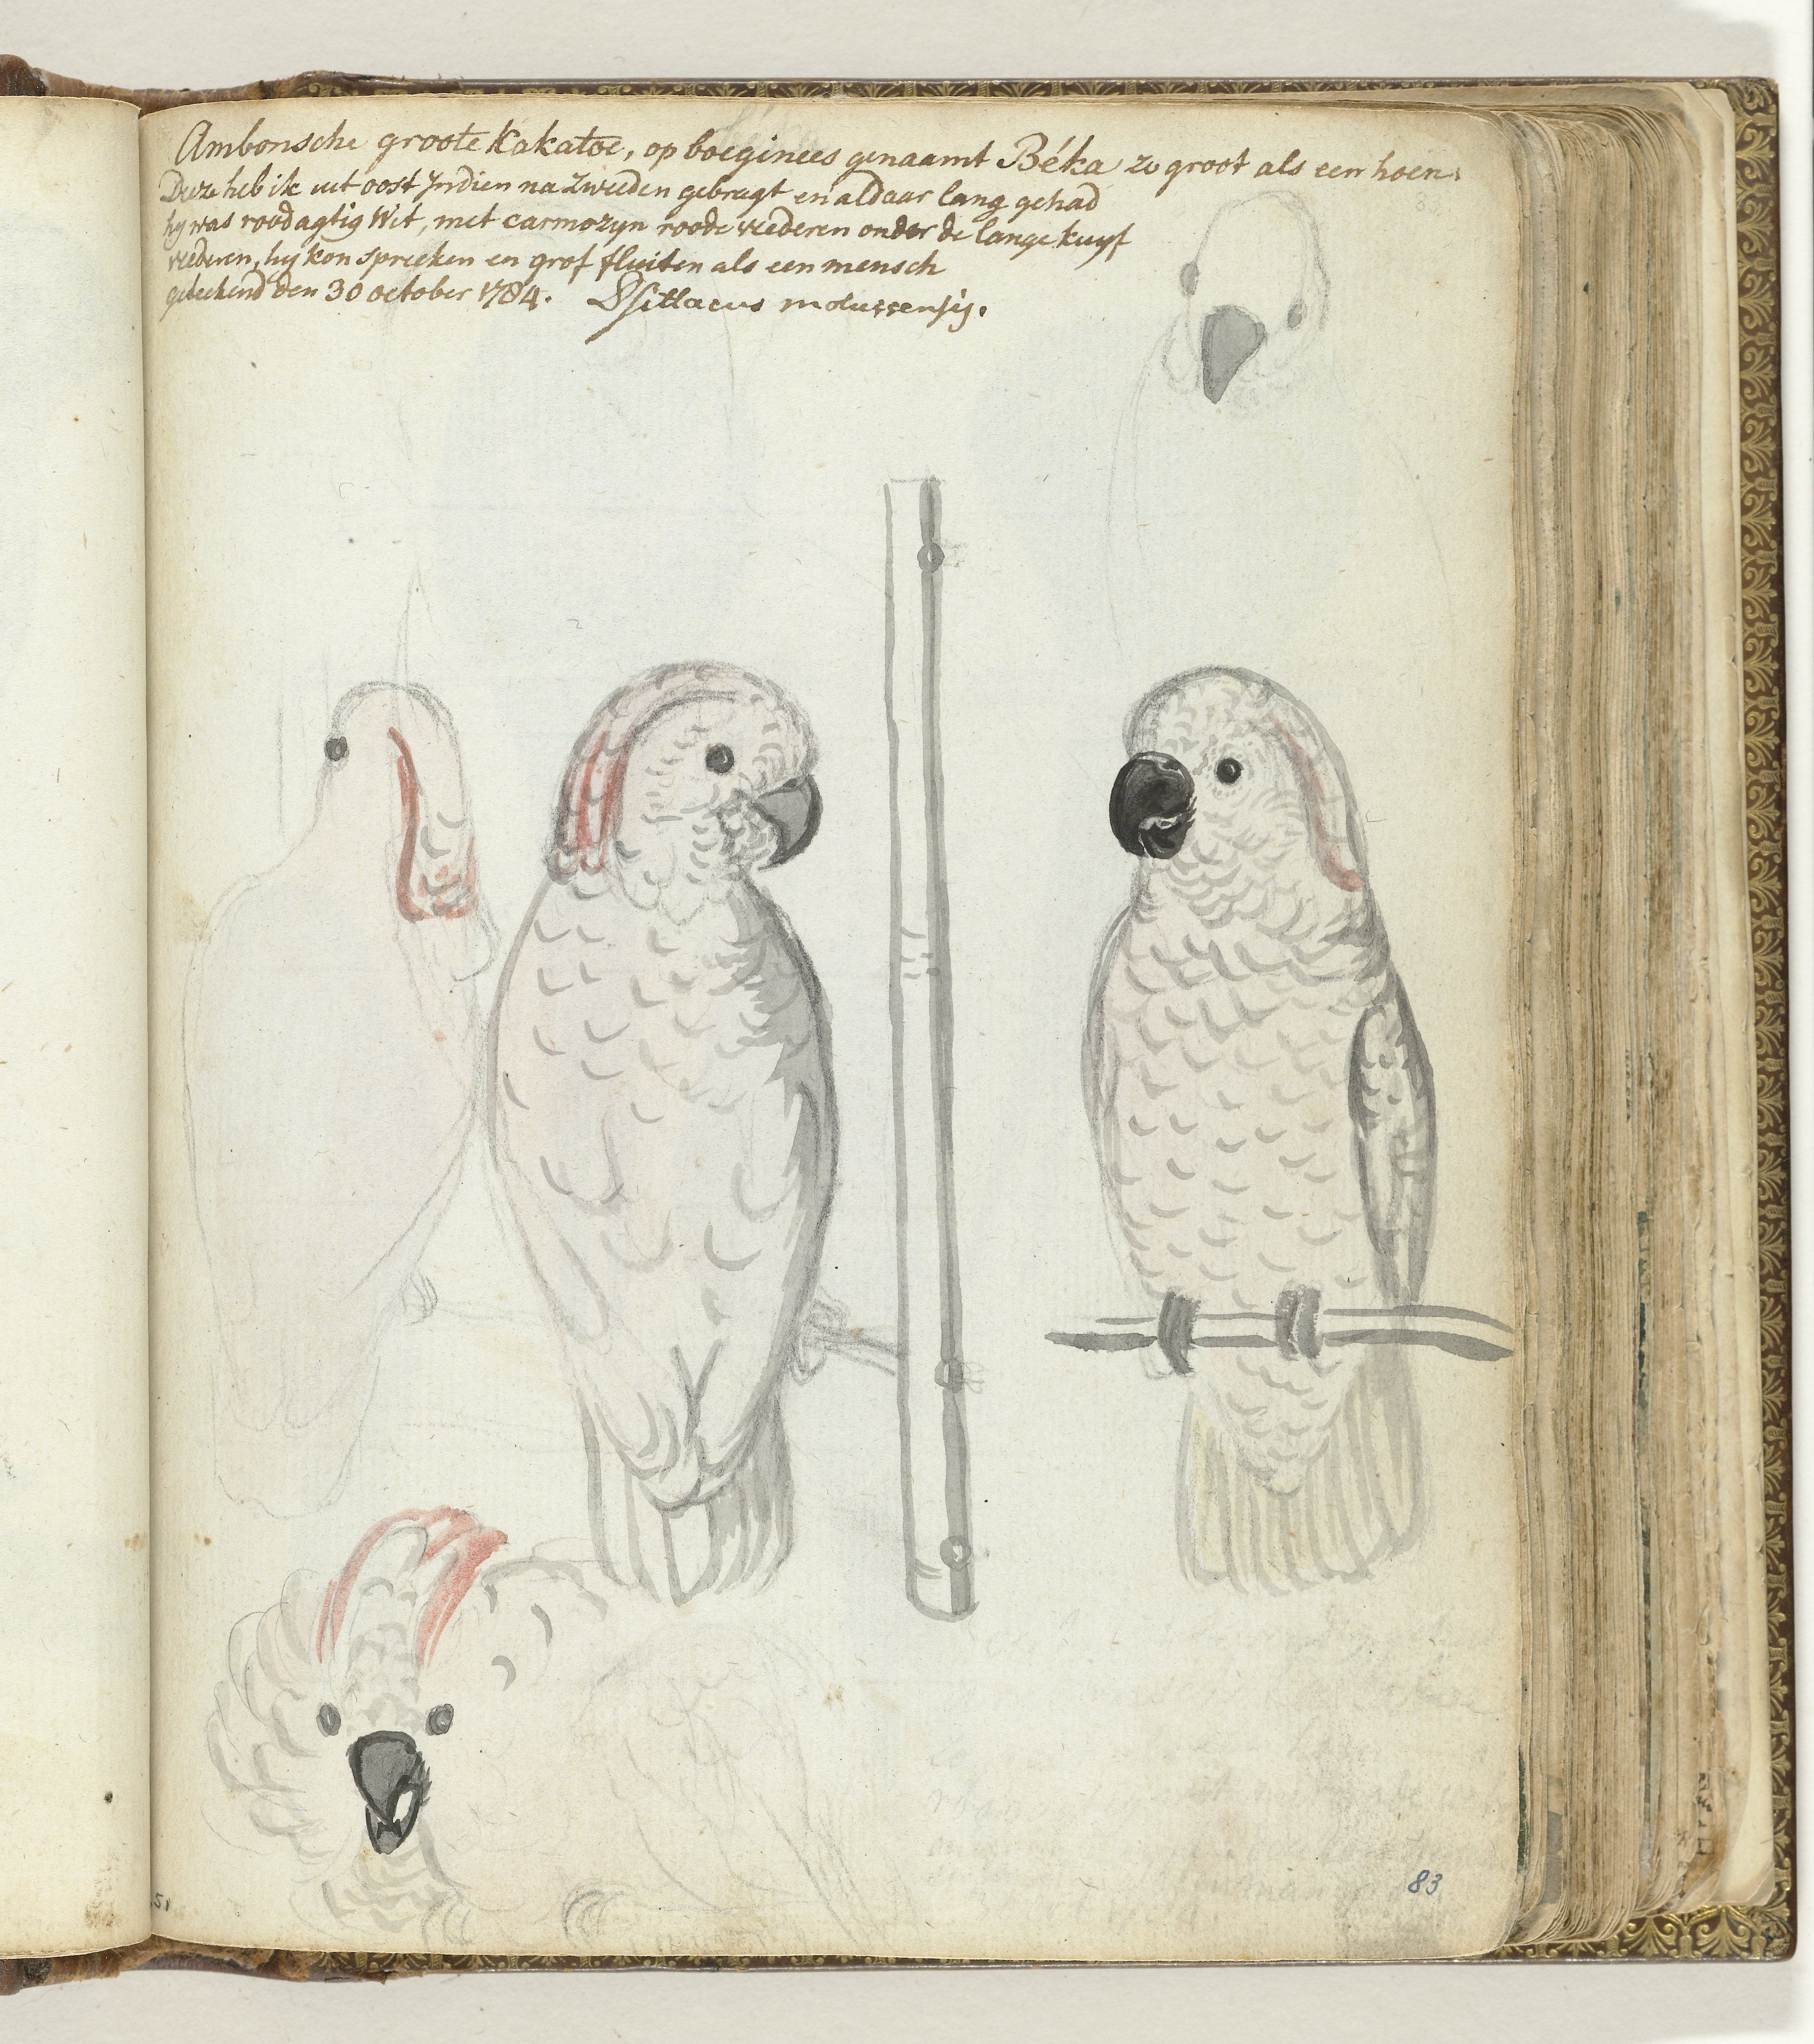 Ambonsche groote Kakatoe, op boeginees genaamt Béka zo groot als een hoen.
Deze heb ik uit oost Indien na Zweeden gebragt en aldaar lang gehad
hy was roodagtig Wit, met carmozyn roode veederen onder de lange kuyf
veederen, hij kon spreeken en grof fluiten als een mensch
geteekend den 30 october 1784. Psittacus moluccensis.
83